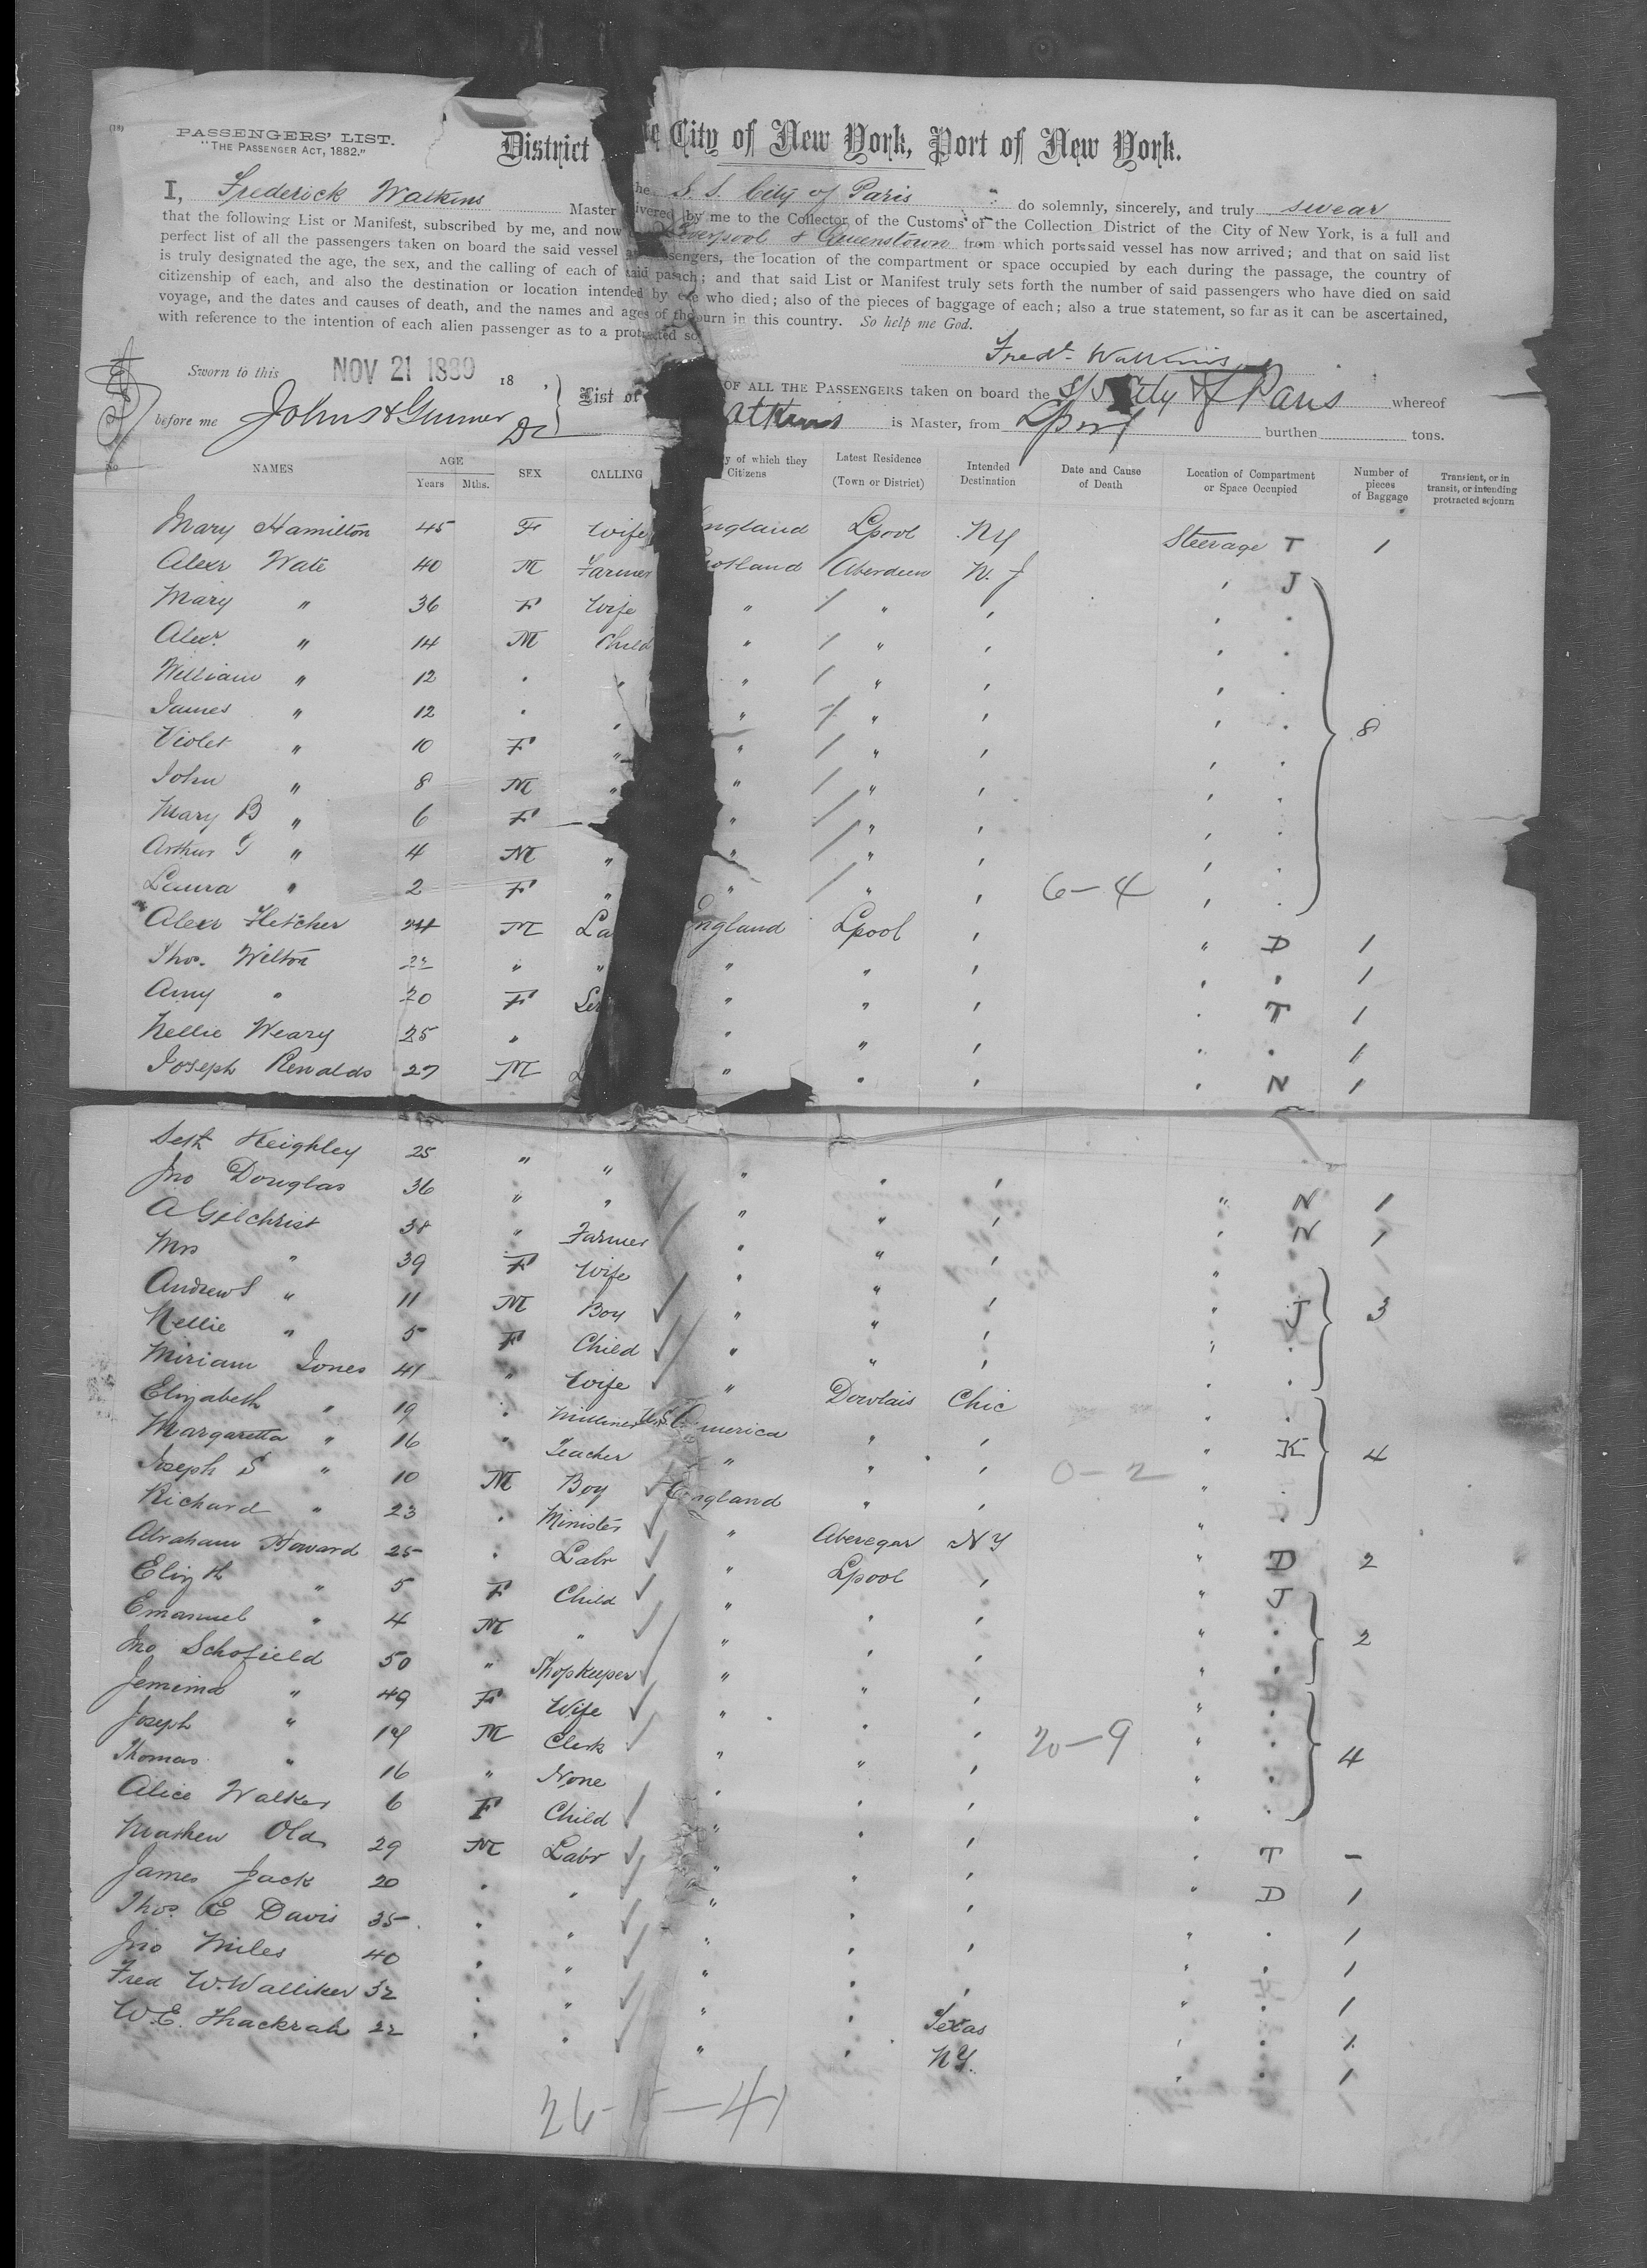 (18)
PASSENGERS' LIST.
"THE PASSENGER ACT, 1882."
District City of New York, Port of New York.
I, Frederick Watkins Master he S. S. City of Paris do solemnly, sincerely, and truly swear
that the following List or Manifest, subscribed by me, and now ivered by me to the Collector of the Customs of the Collection District of the City of New York, is a full and
perfect list of all the passengers taken on board the said vessel Liverpool & Queenstown from which ports said vessel has now arrived; and that on said list
is truly designated the age, the sex, and the calling of each of said passengers, the location of the compartment or space occupied by each during the passage, the country of
citizenship of each, and also the destination or location intended by each; and that said List or Manifest truly sets forth the number of said passengers who have died on said
voyage, and the dates and causes of death, and the names and ages of those who died; also of the pieces of baggage of each; also a true statement, so far as it can be ascertained,
with reference to the intention of each alien passenger as to a protracted sojourn in this country. So help me God.
Fredk. Watkins
Sworn to this NOV 21 1889 18 ,
before me
List of OF ALL THE PASSENGERS taken on board the S/S City of Paris whereof
atkins is Master, from Lpool burthen tons.
NAMES AGE Years Mths. SEX CALLING y of which they Citizens Latest Residence (Town or District) Intended Destination Date and Cause of Death Location of Compartment or Space Occupied Number of pieces of Baggage Transient, or in transit, or intending protracted sojourn
Mary Hamilton 45 F Wife England Lpool NY Steerage T 1
Alexr Wate 40 M Farmer Scotland Aberdeen N. J ' J
Mary " 36 F Wife " " ' '
Alexr. " 14 M Child " " ' '
William " 12 " " " " ' '
James " 12 " " " " ' '
Violet " 10 F " " " ' ' 8
John " 8 M " " " ' '
Mary B " 6 F " " ' '
Arthur G " 4 M " " " ' '
Laura " 2 F " " " ' 6-4 '
Alexr Fletcher 24 M La England Lpool ' " D 1
Thos. Wilton 22 " " " " ' ' " 1
Amy " 20 F Ser " " ' ' T 1
Nellie Weary 25 " " " ' ' " 1
Joseph Renalds 27 M L " " ' ' N 1
Seth Keighley 25 " " " " ' " N 1
Jno Douglas 36 " " " " ' ' N 1
A Gilchrist 38 " Farmer " " ' "
Mrs " 39 F Wife " " ' " J 3
Andrew S " 11 M Boy " " ' "
Nellie " 5 F Child " " ' "
Miriam Jones 41 " Wife " Dowlais Chic "
Elizabeth " 19 " Milliner U.S. America " ' " K 4
Margaretta " 16 " Teacher " " ' 0-2 "
Joseph S " 10 M Boy England " ' "
Richard " 23 " Minister " NY " D 2
Abraham Howard 25 " Labr " Lpool ' " J
Elizth " 5 F Child " " ' " 2
Emanuel " 4 M " " " ' "
Jno Schofield 50 " Shopkeeper " " ' "
Jemima " 49 F Wife " " ' 20-9 " 4
Joseph " M Clerk " " ' "
Thomas " 16 " None " " ' "
Alice Walker 6 F Child " " ' ' T -
Mathew Old 29 M Labr " " ' " D 1
James Jack 20 " " " " ' " " 1
Thos. E Davis 35 " " " " ' " " 1
Jno Miles 40 " " " " ' " " 1
Fred W. Walliker 32 " " " " Texas ' " 1
W.E. Thackrah 22 " " " " NY. ' " 1
26-15-41